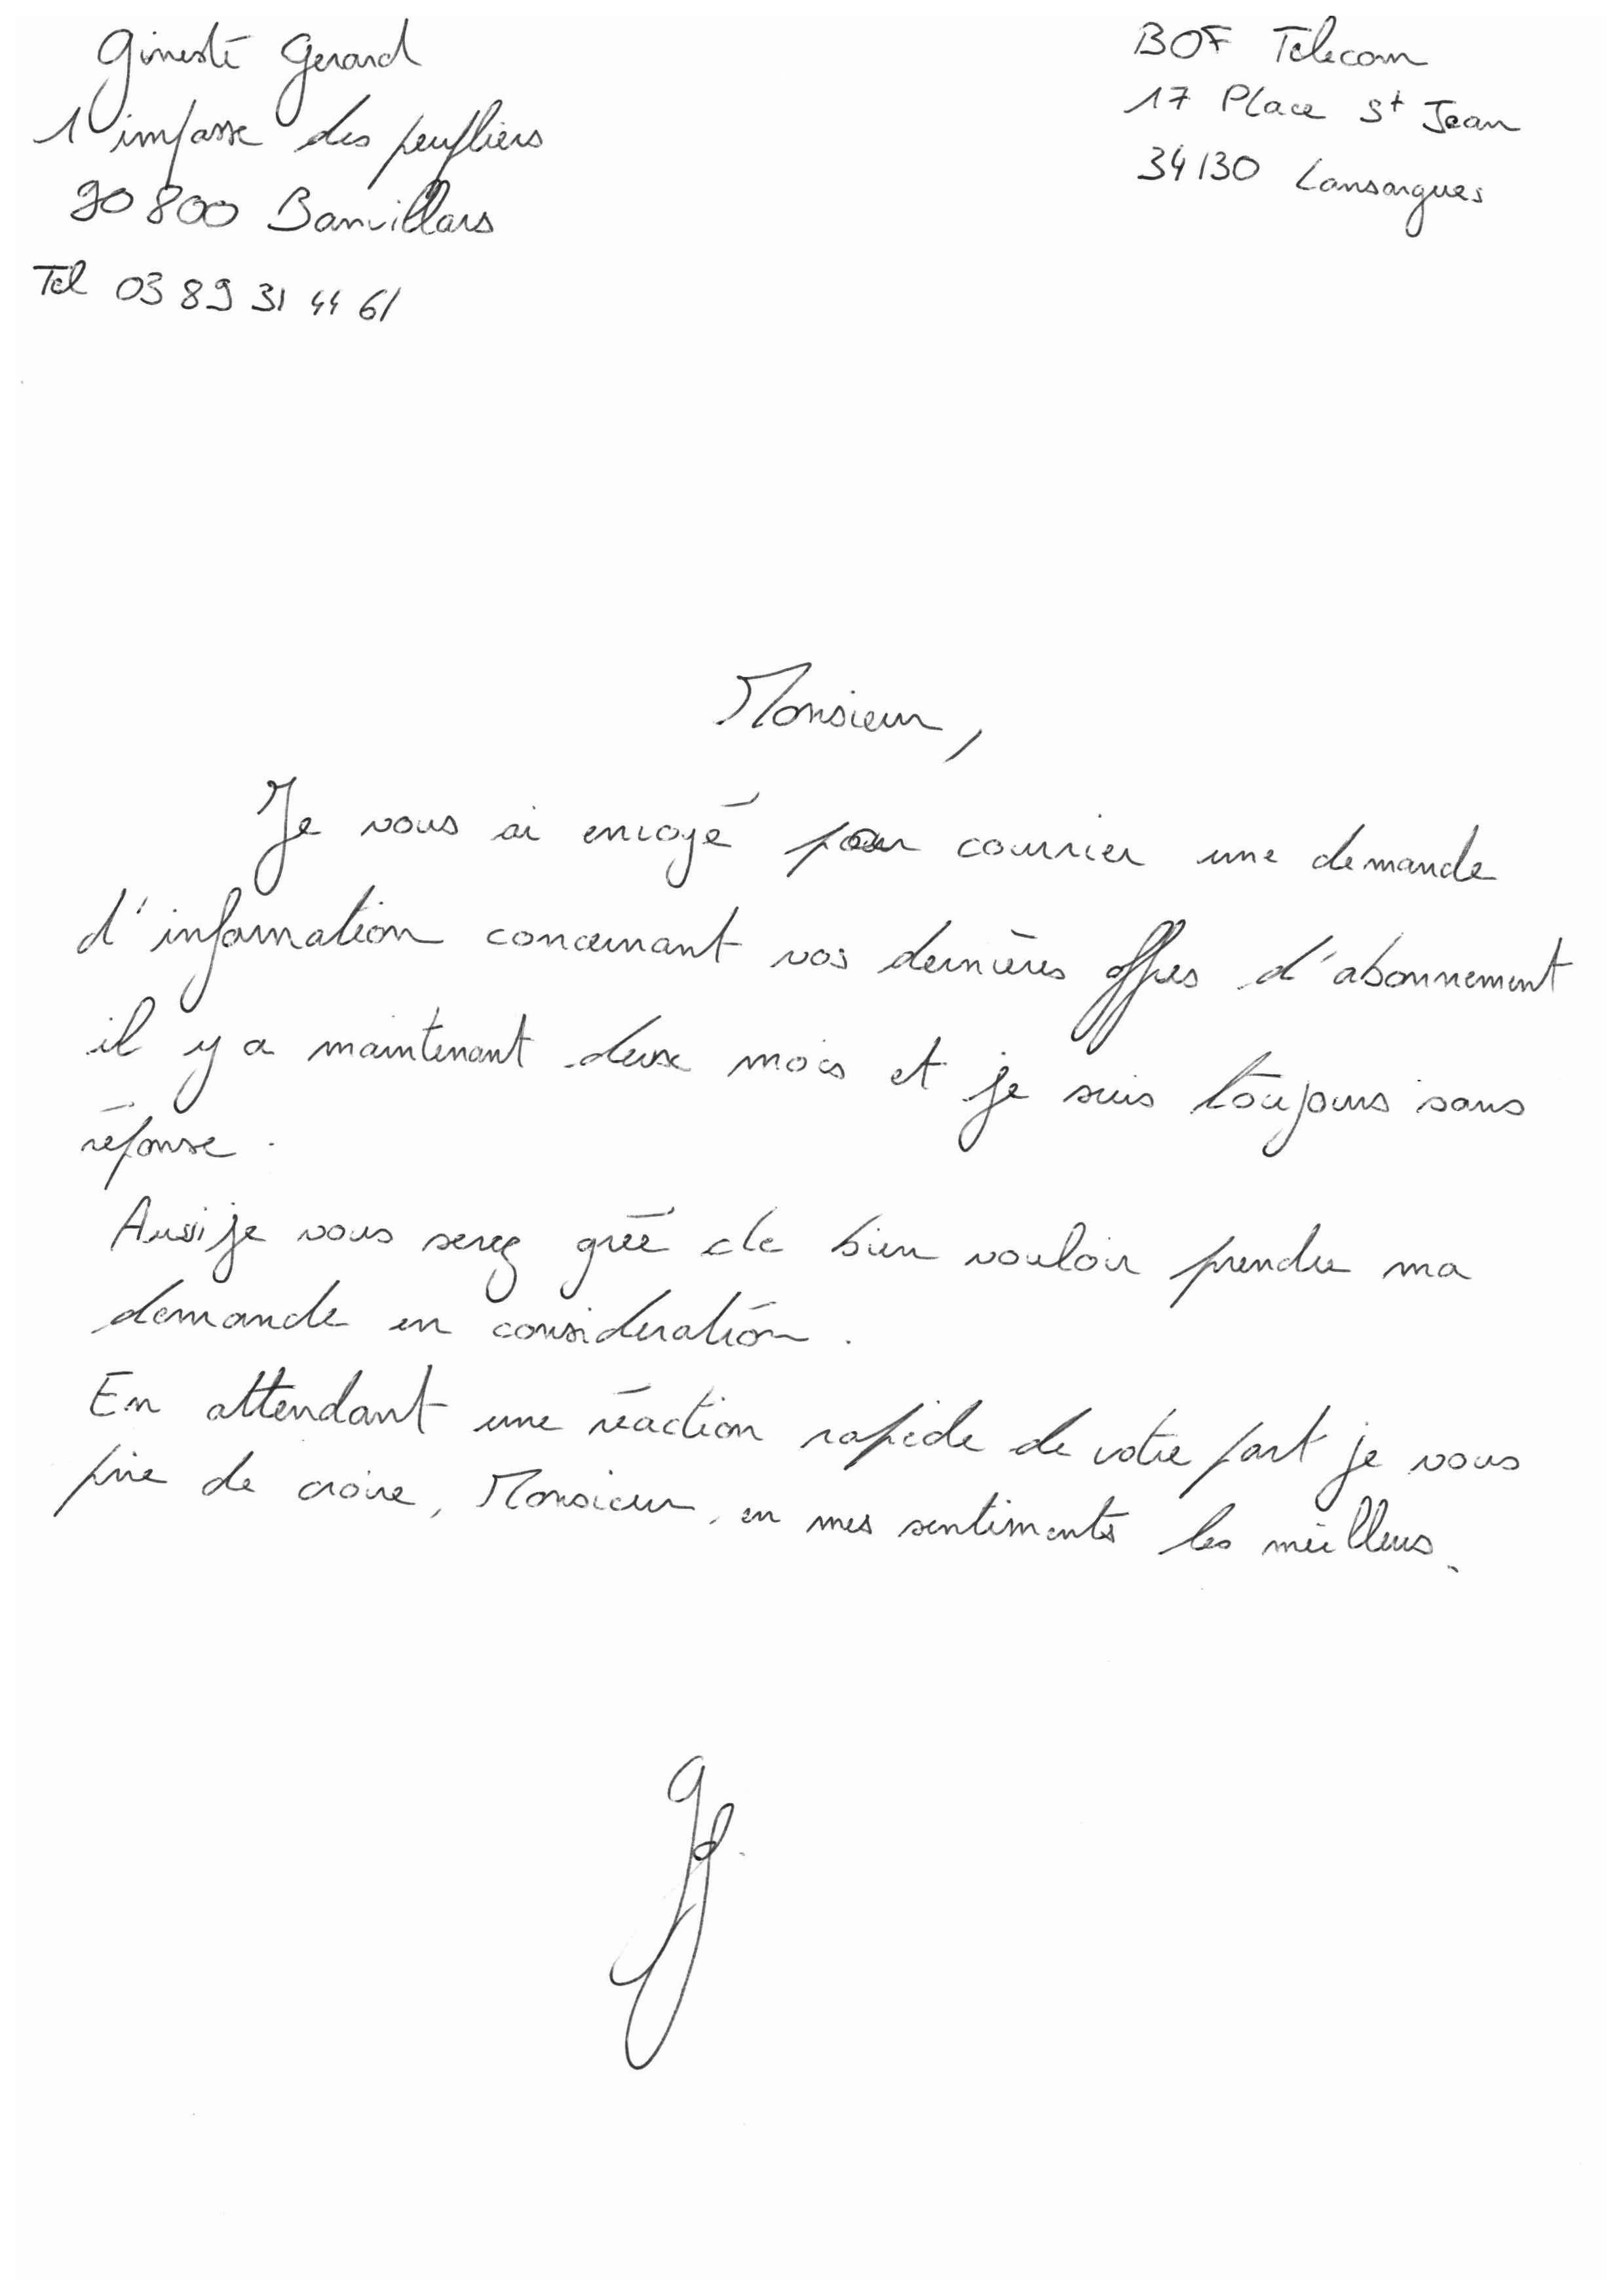 Ginesté Gerard
1 impasse des peupliers
90 800 Banvillars
Tel 03 89 31 44 61
BOF Telecom
17 Place St Jean
34130 Lansargues
Monsieur,
Je vous ai envoyé par courrier une demande
d'information concernant vos dernières offres d'abonnement
il y a maintenant deux mois et je suis toujours sans
réponse.
Aussi je vous serez gréé de bien vouloir prendre ma
demande en consideration.
En attendant une réaction rapide de votre part je vous
prie de croire, Monsieur, en mes sentiments les meilleurs.